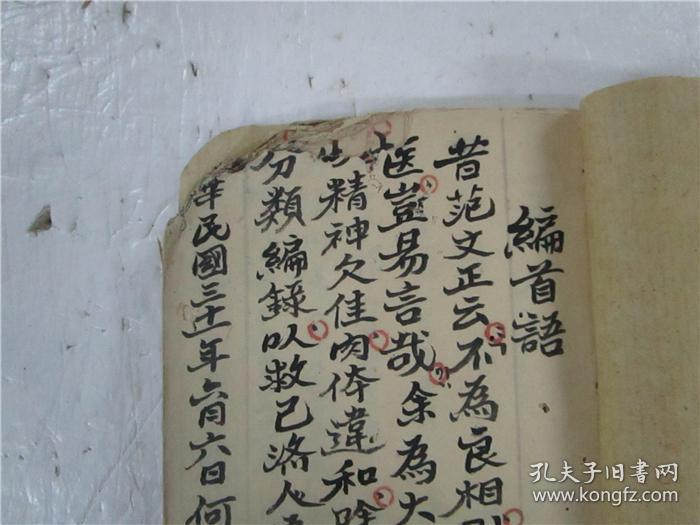 編首語
昔范文正云不為良相則
医豈易言哉余為大
精神欠佳肉体違和
分類編錄以救己濟人
華民國三十一年六月六日何
孔夫子旧书网
www.kongfz.com